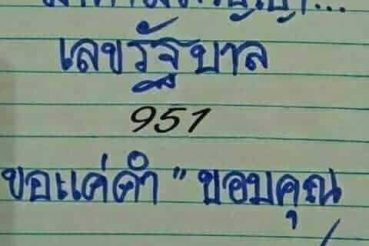 เลขรัฐบาล
951
ขอแค่คำ " ขอบคุณ